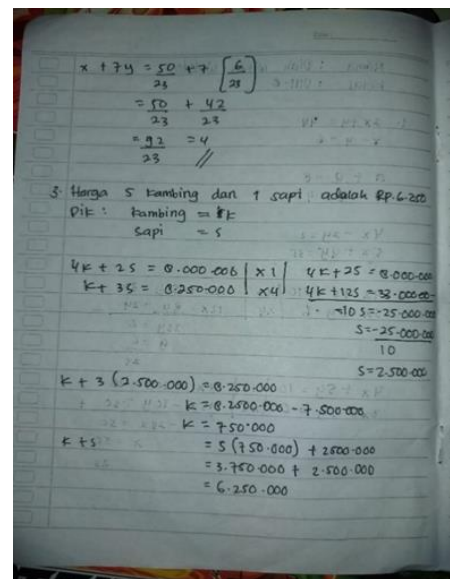 x + 7y = 50/23 + 7 [6/23]
= 50/23 + 42/23
= 92/23 = 4 //
3. Harga 5 kambing dan 1 sapi adalah RP. 6.250
Dik : kambing = k
sapi = s
4k + 2s = 8.000.000 | x1 | 4k + 2s = 8.000.000
k + 3s = 8.250.000 | x4 | 4k + 12s = 33.000.000
-10 s = -25.000.000
s = -25.000.000
10
s = 2.500.000
k + 3 (2.500.000) = 8.250.000
k = 8.2500.000 - 7.500.000
k = 750.000
k + s = 5 (750.000) + 2500.000
= 3.750.000 + 2.500.000
= 6.250.000